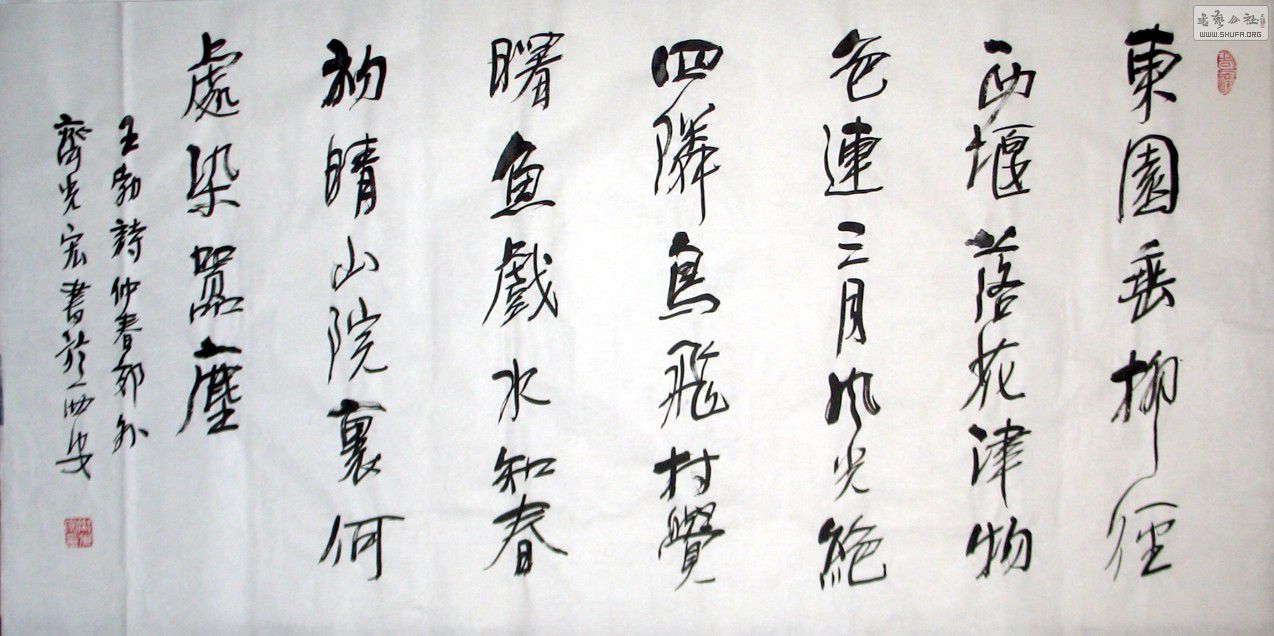 書藝公社
WWW.SHUFA.ORG
東園垂柳徑
西堰落花津物
色連三月風光絶
四隣鳥飛村覺
曙魚戲水知春
初晴山院裏何
處染囂塵
王勃詩仲春郊外
齊光宏書於西安